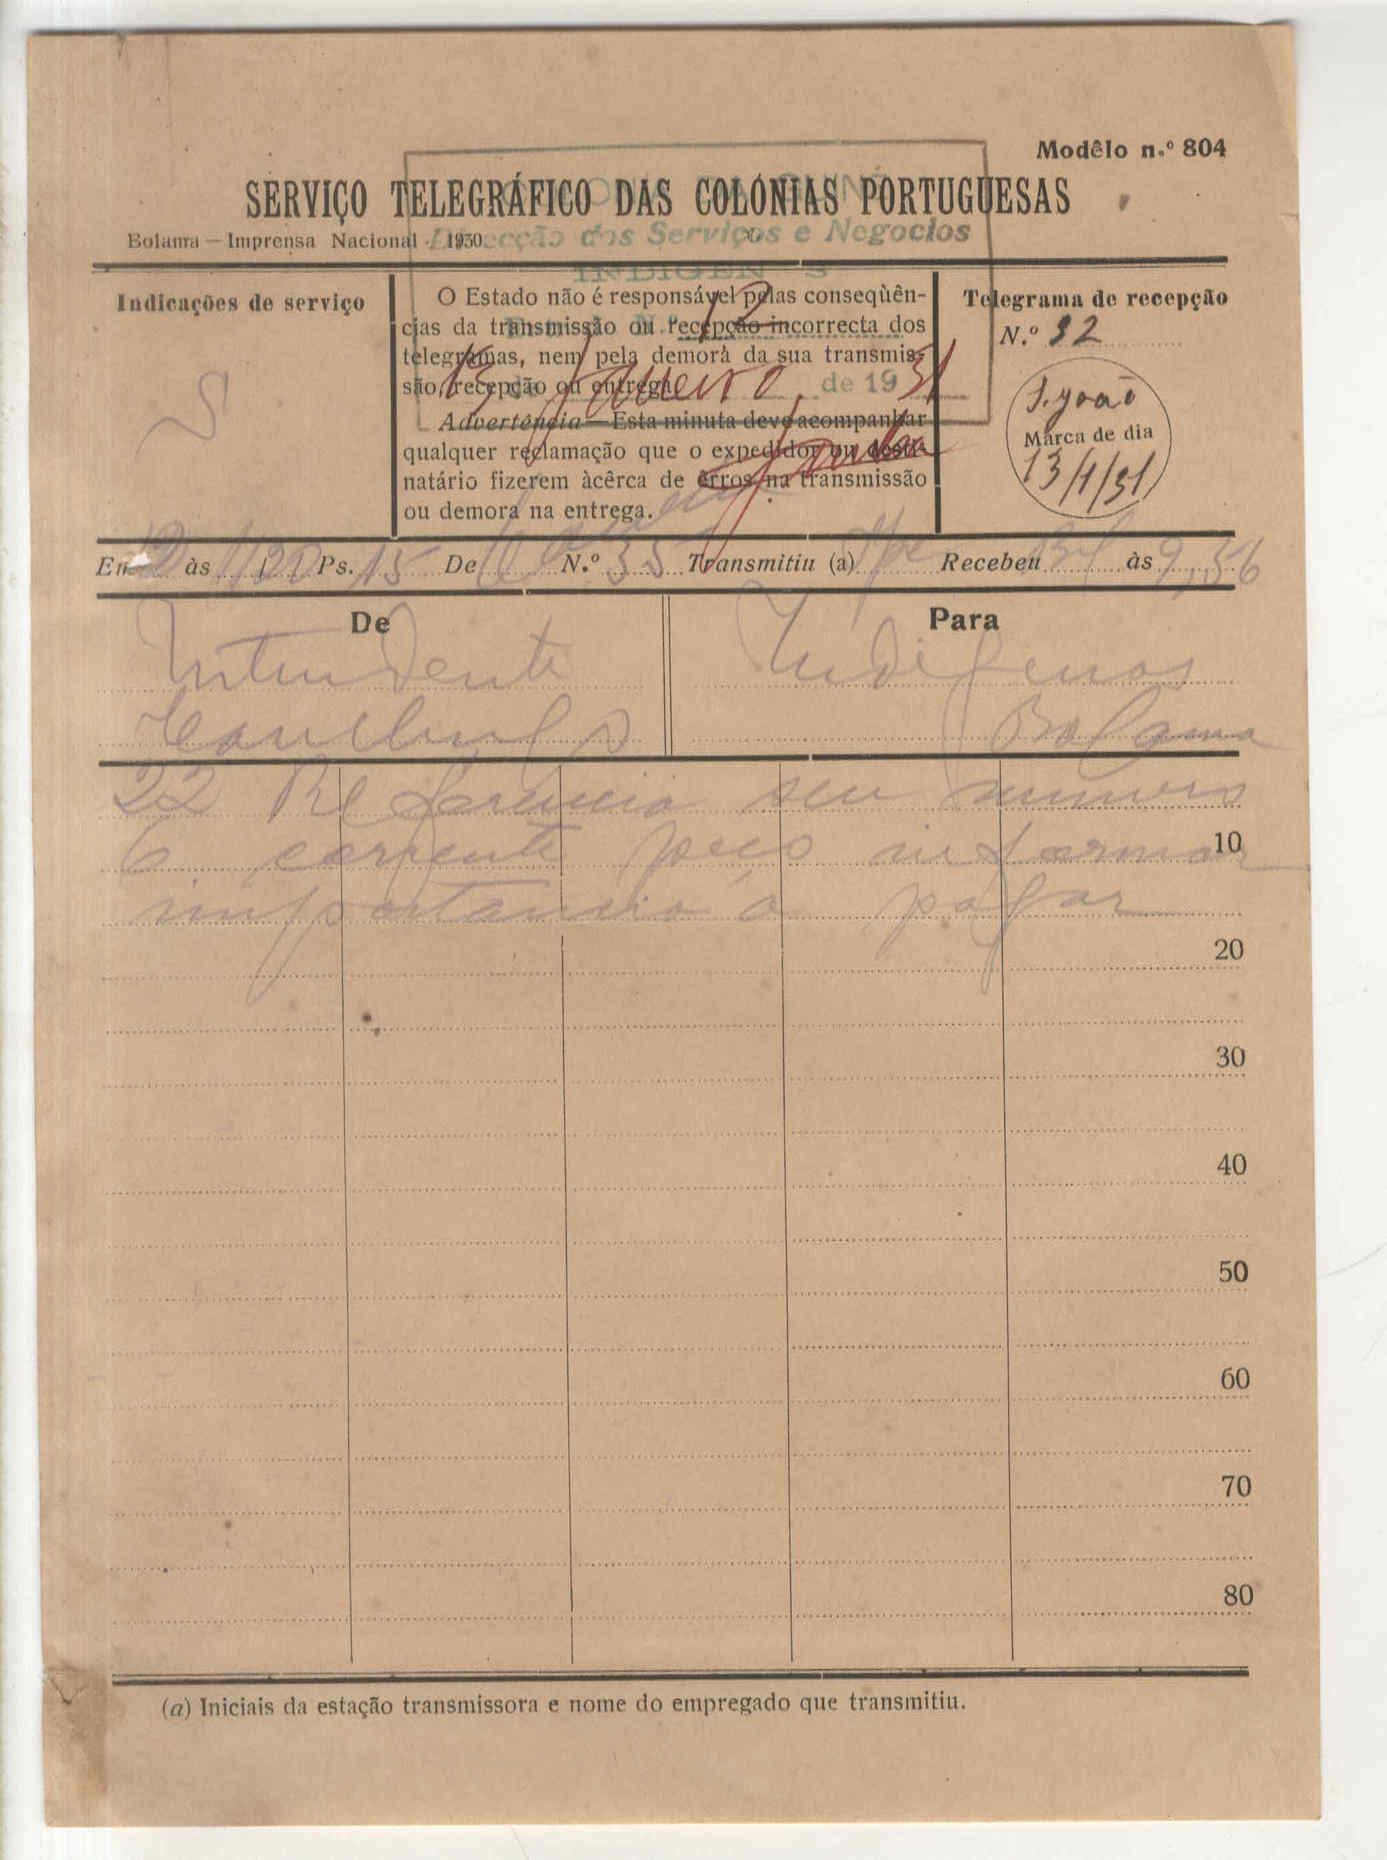 Modêlo n.º 804
SERVIÇO TELEGRÁFICO DAS COLÓNIAS PORTUGUESAS
Bolama — Imprensa Nacional — 1930
Direcção dos Serviços e Negocios
INDIGENAS
Indicações de serviço
S
O Estado não é responsável pelas conseqùên-
cias da transmissão ou recepção incorrecta dos
telegramas, nem pela demora da sua transmis-
são, recepção ou entrega.
Advertência — Esta minuta deve acompanhar
qualquer reclamação que o expedidor ou desti-
natário fizerem àcêrca de êrros na transmissão
ou demora na entrega.
N.º 12
13 de Janeiro de 1931
Telegrama de recepção
N.º 32
S. João
Marca de dia
13/1/31
Em 12 às 1120 Ps. 15 De N.º 35 Transmitiu (a) Recebeu às 9,56
De
Intendente
Canchungo
Para
Indigenas
Bolama
22 Referencia seu numero
6 corrente peço informar
importancia a pagar
10
20
30
40
50
60
70
80
(a) Iniciais da estação transmissora e nome do empregado que transmitiu.